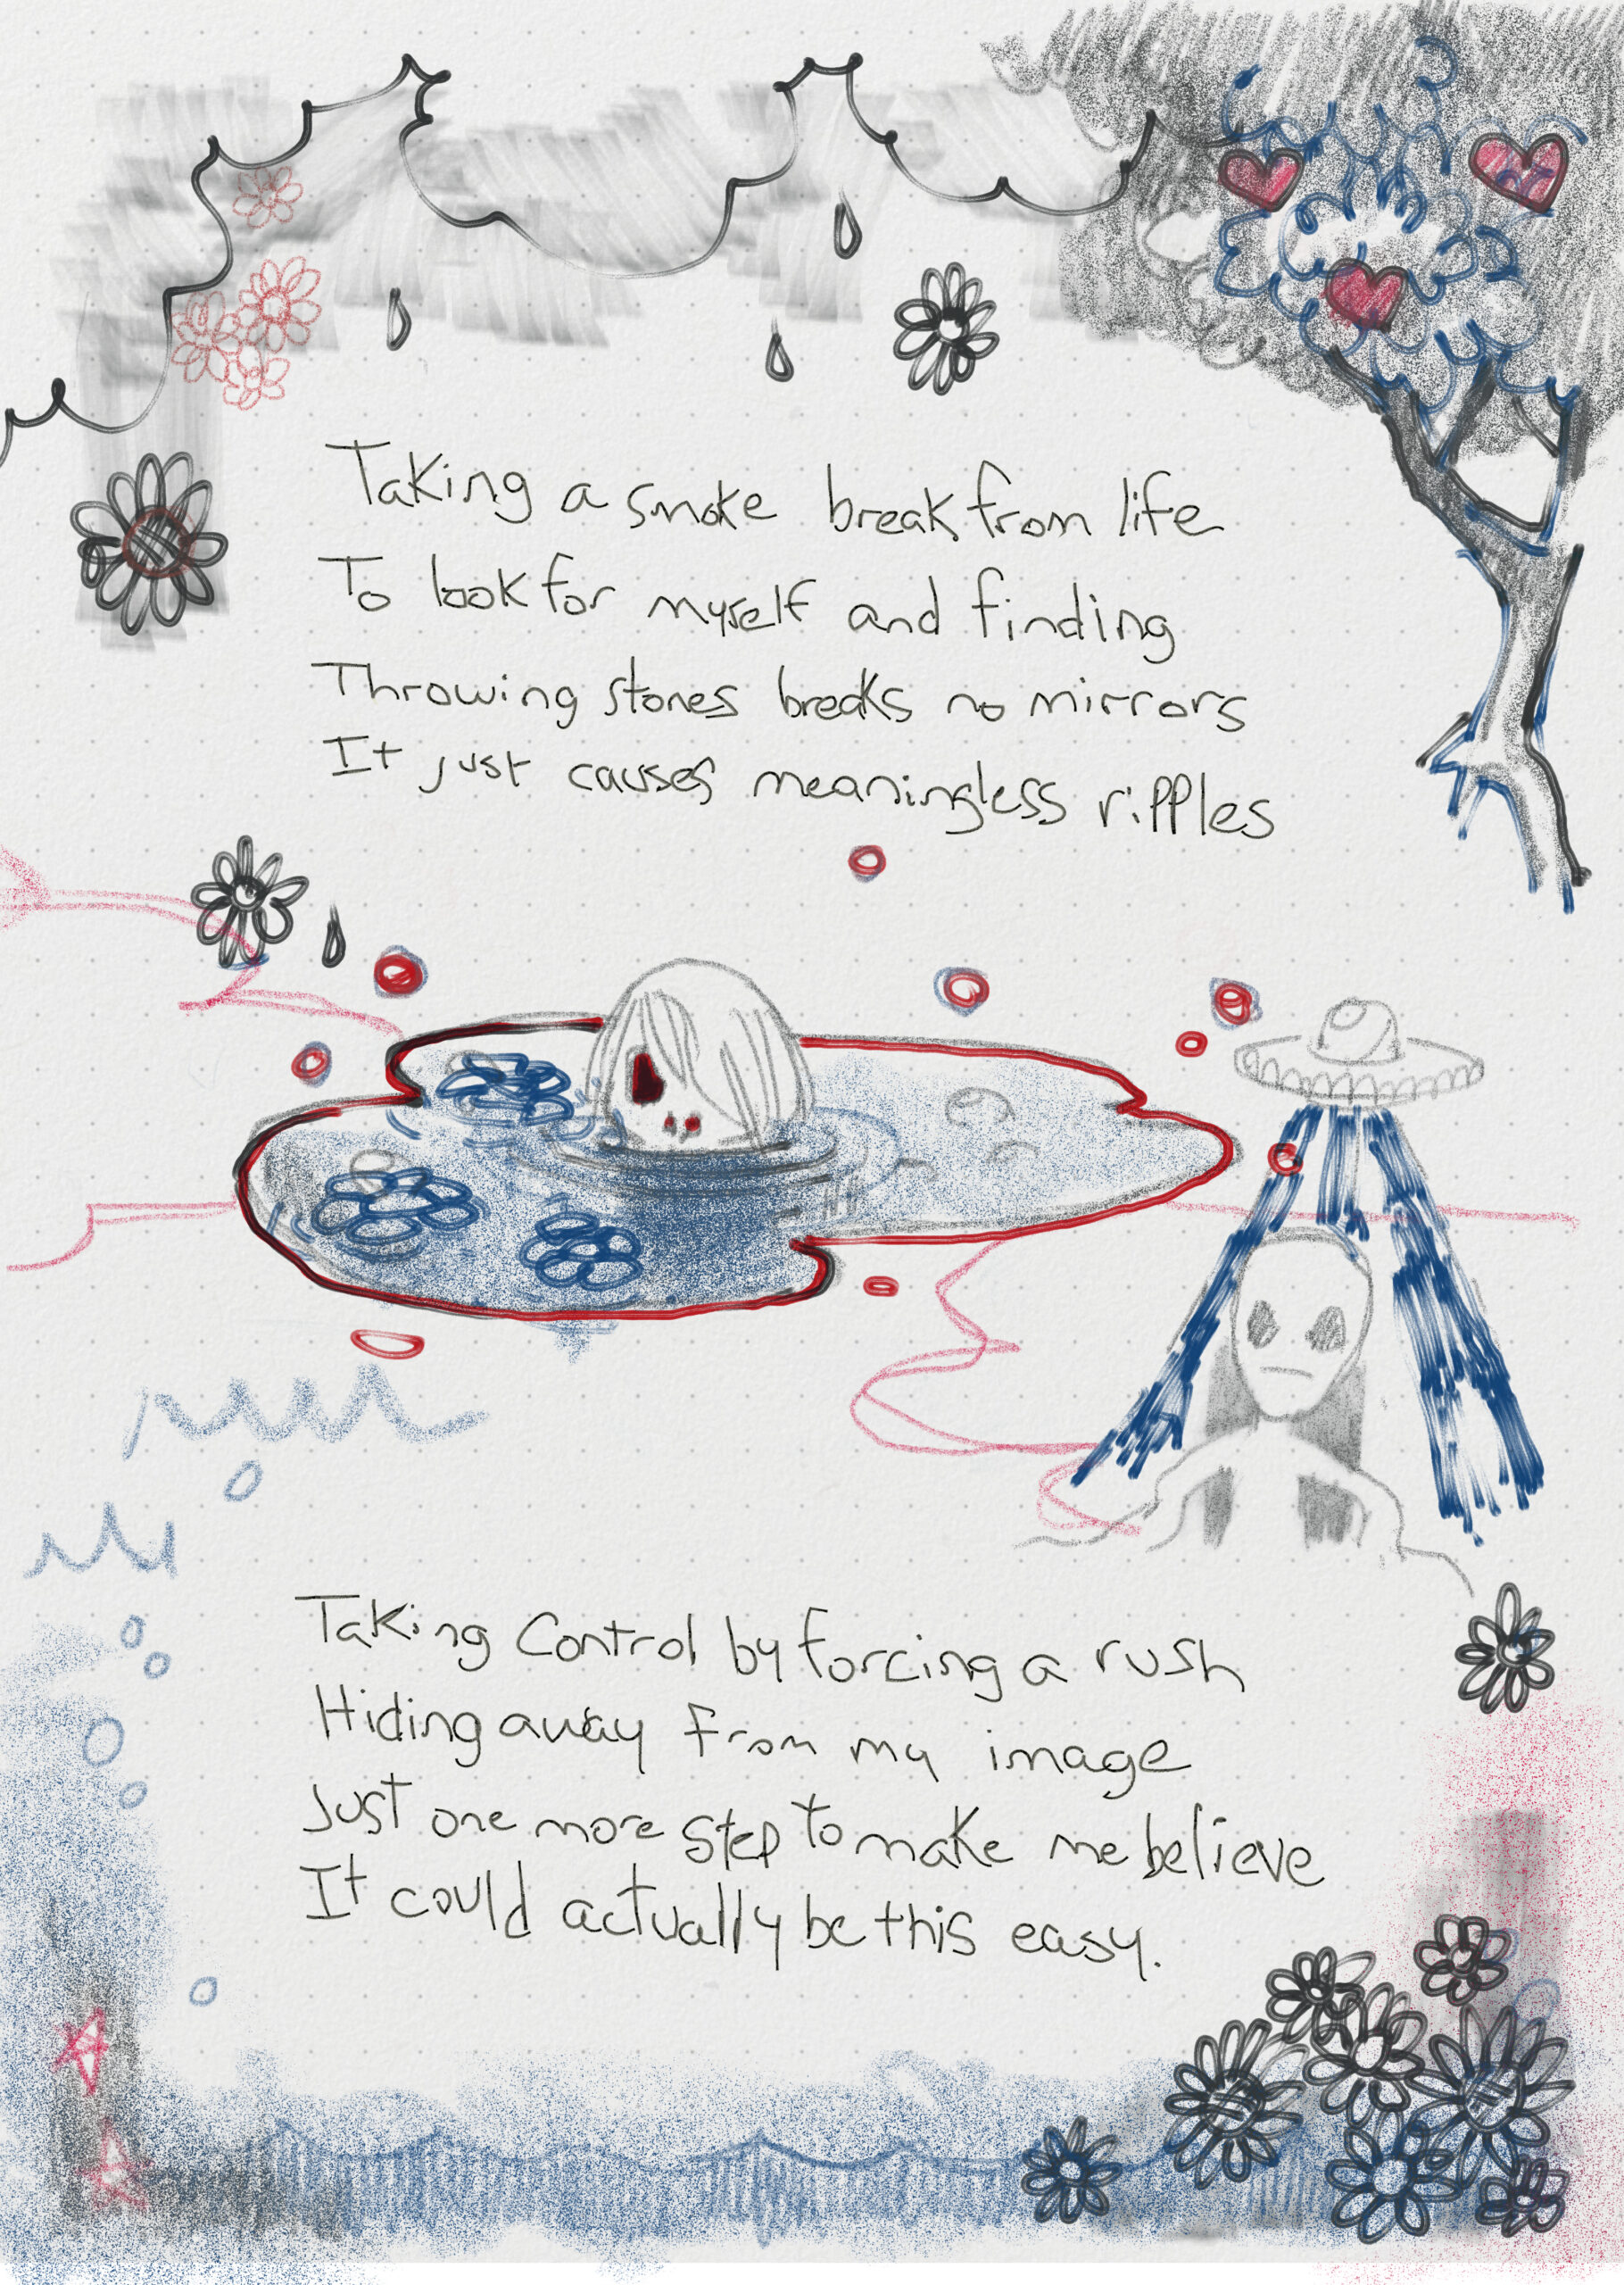 Taking a smoke break from life
To look for myself and finding
Throwing stones breaks no mirrors
It just causes meaningless ripples
Taking Control by forcing a rush
Hiding away from my image
Just one more step to make me believe
It could actually be this easy.